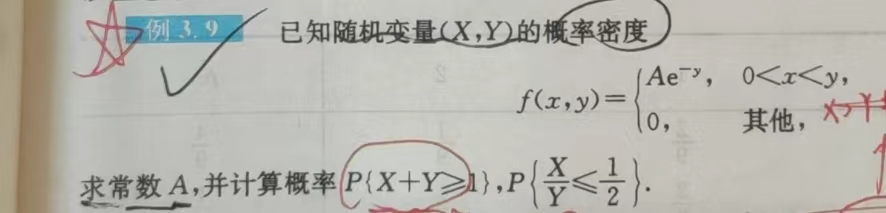 例 3.9 已知随机变量(X,Y)的概率密度
f(x,y)={Ae⁻ʸ, 0<x<y,
0, 其他,
求常数 A,并计算概率 P{X+Y≥1},P{X/Y≤1/2}.